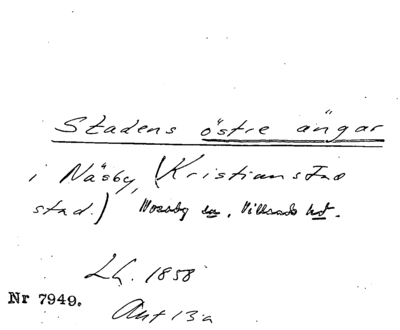 Stadens östre ängar
i Näsby, (Kristianstad
stad.) Nosaby sn, Villands hd.
Lh. 1858
Nr 7949.
Ant 13a